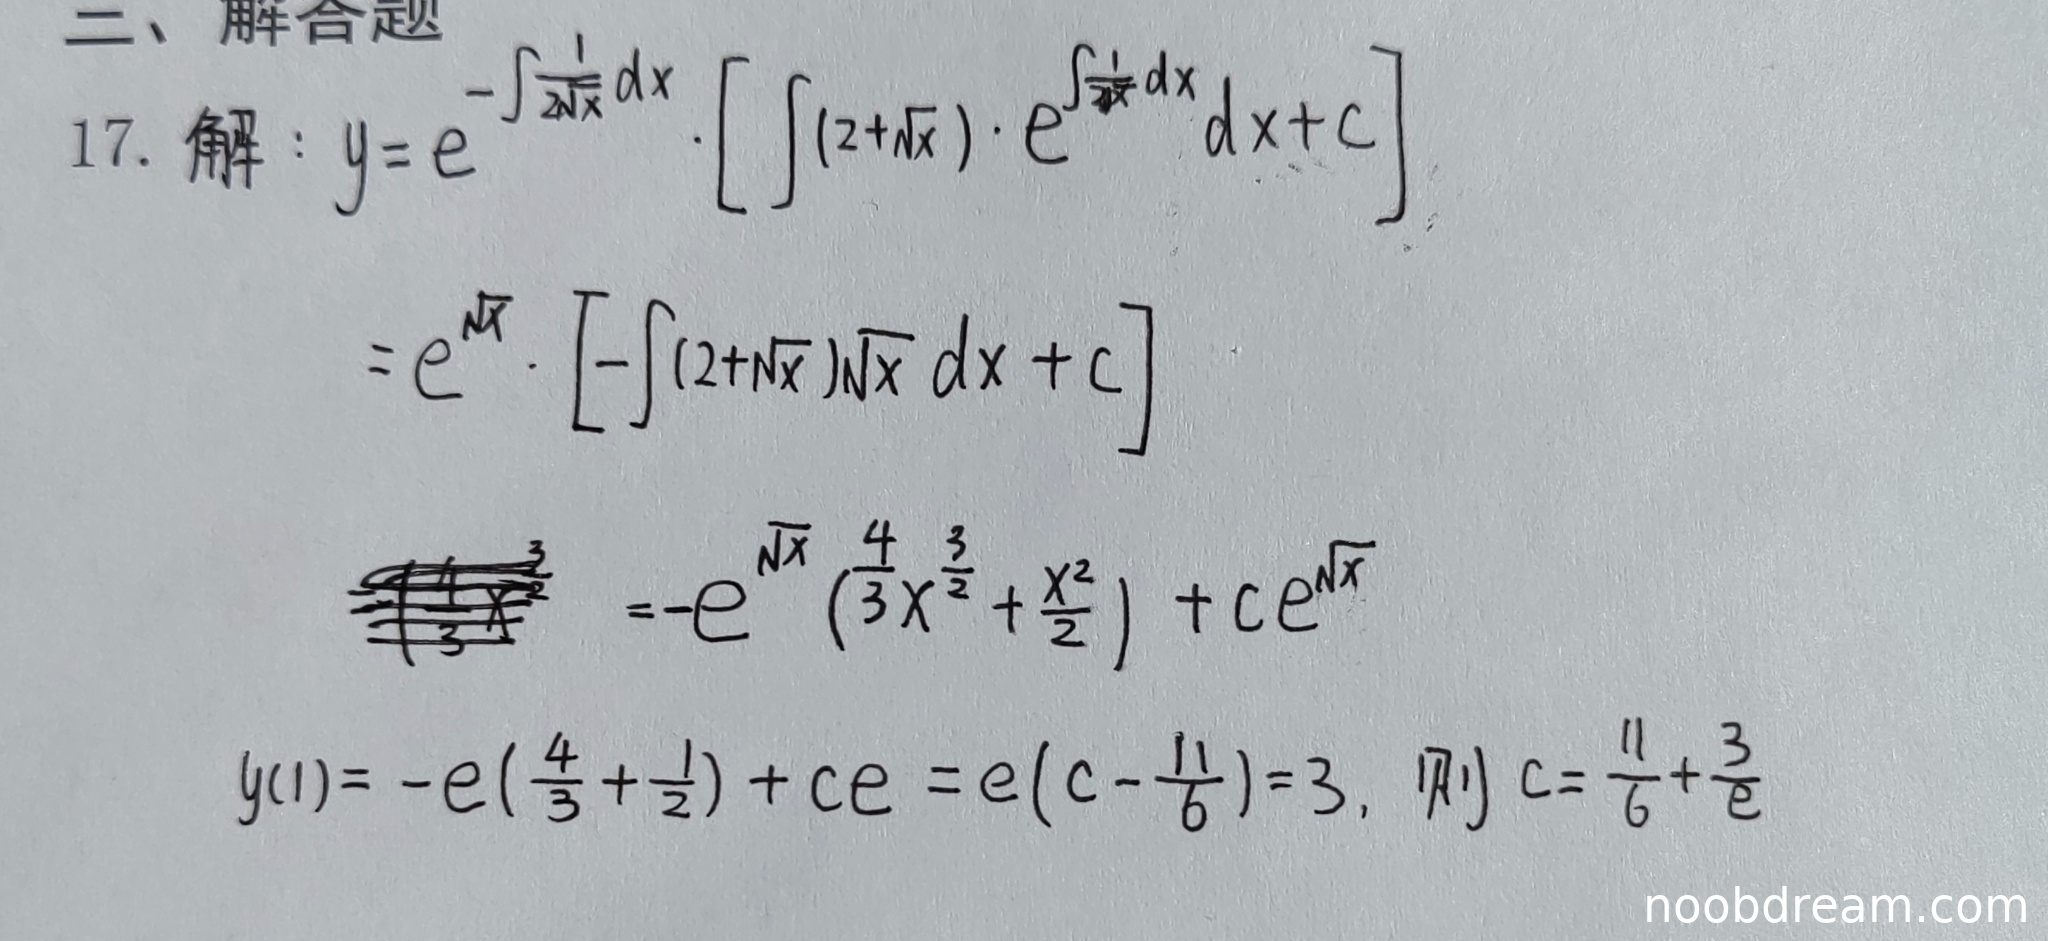 二、解答题
17. 解：y=e^{-∫\frac{1}{2√x}dx}·[∫(2+√x)·e^{∫\frac{1}{2√x}dx}dx+c]
=e^{√x}·[-∫(2+√x)√x dx+c]
=-e^{√x}(\frac{4}{3}x^{\frac{3}{2}}+\frac{x^2}{2})+ce^{√x}
y(1)=-e(\frac{4}{3}+\frac{1}{2})+ce=e(c-\frac{11}{6})=3, 则 c=\frac{11}{6}+\frac{3}{e}
noobdream.com